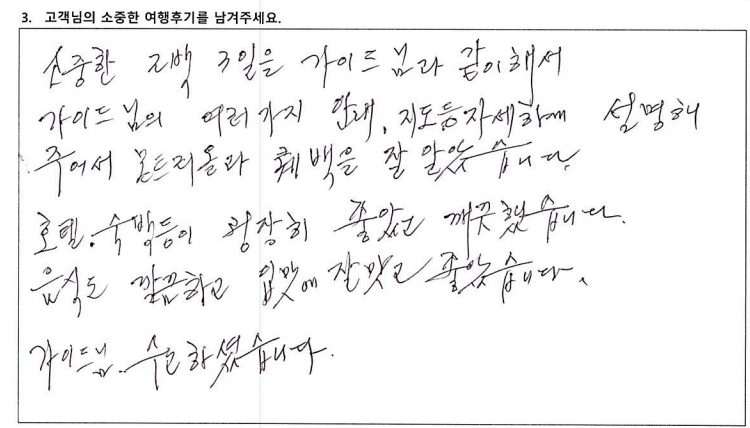 3. 고객님의 소중한 여행후기를 남겨주세요.
소중한 2박 3일을 가이드님과 같이해서
가이드님의 여러가지 안내, 지도등 자세하게 설명해
주어서 몬트리올과 퀘백을 잘 알았습니다.
호텔, 숙박등이 굉장히 좋았고 깨끗했습니다.
음식도 깔끔하고 입맛에 잘맞고 좋았습니다.
가이드님. 수고하셨습니다.